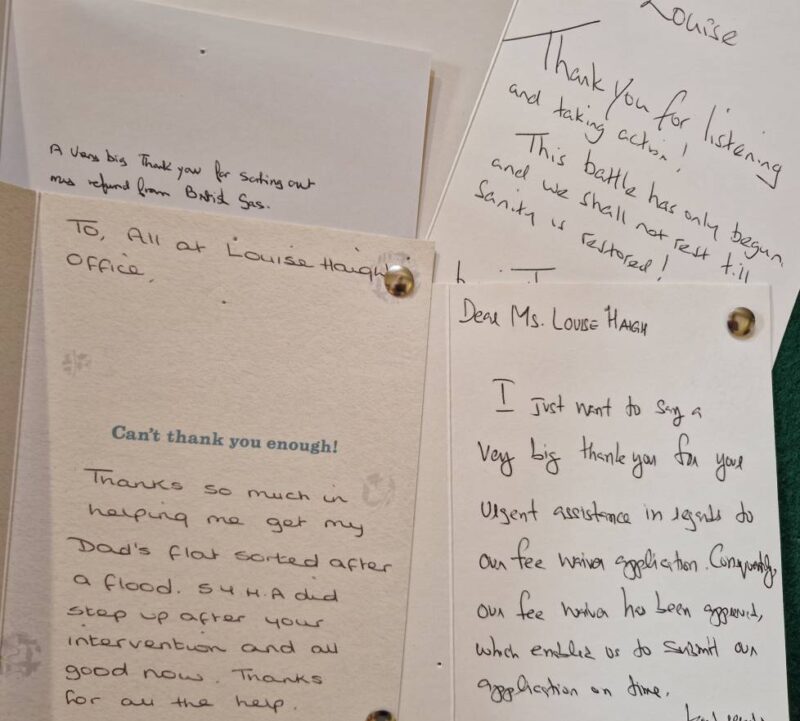 A very big Thank you for sorting out
my refund from British Gas.
Louise
Thank you for listening
and taking action!
This battle has only begun
and we shall not rest till
Sanity is restored!
To, All at Louise Haigh
Office,
Can't thank you enough!
Thanks so much in
helping me get my
Dad's flat sorted after
a flood. S Y H.A did
step up after your
intervention and all
good now. Thanks
for all the help.
Dear Ms. Louise Haigh
I Just want to say a
Very big thank you for your
urgent assistance in regards to
our fee waiver application.
our fee waiver has been approved,
which enables us to submit our
application on time.